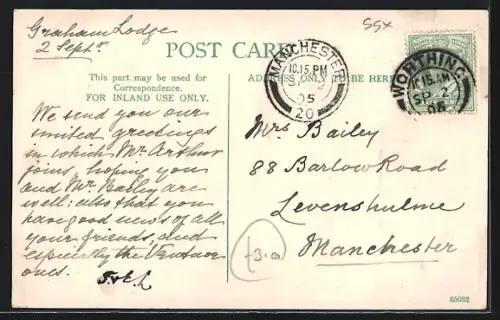 Graham Lodge
2 Septr
55x
POST CARD
This part may be used for
Correspondence.
FOR INLAND USE ONLY.
ADDRESS ONLY TO BE HERE
MANCHESTER
10.15 PM
SP 2
05
20
WORTHING
10.15 AM
SP 2
05
We send you our
united greetings
in which Mr. Arthur
joins, hoping you
and Mr. Bailey are
well; also that you
have good news of all
your friends, and
especially the
ones.
Mrs Bailey
88 Barlow Road
Levenshulme
Manchester
£3.00
65032